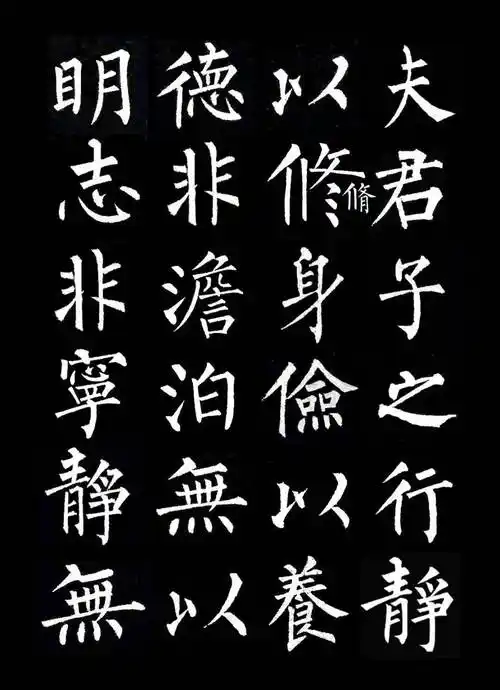 夫君子之行靜
以修身儉以養
脩
德非澹泊無以
明志非寧靜無